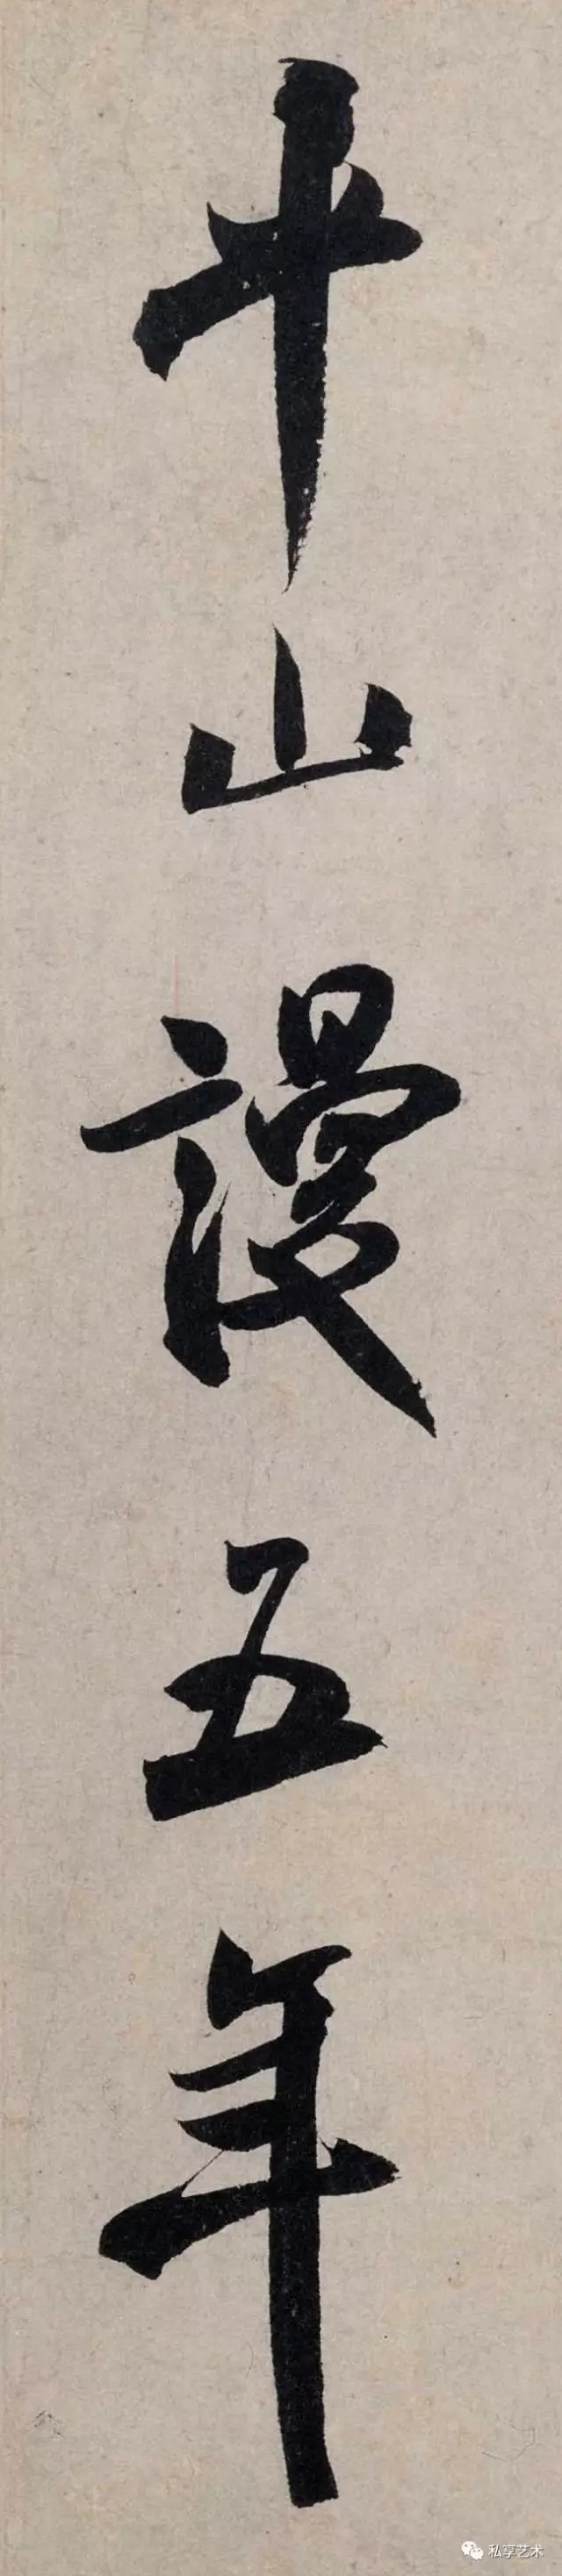 半山謾五年
私享艺术